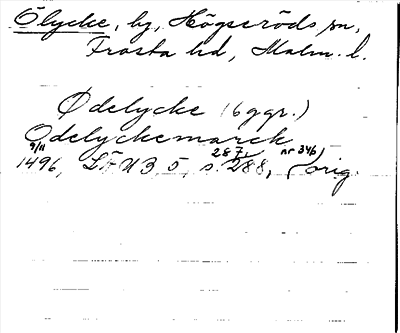 Ölycke, by, Högseröds sn,
Frosta hd, Malm. l.
Ødelycke (6 ggr.)
Odelyckemarck
9/11 287, nr 346)
1496, LÄU 3, 5, s. 288, (orig.